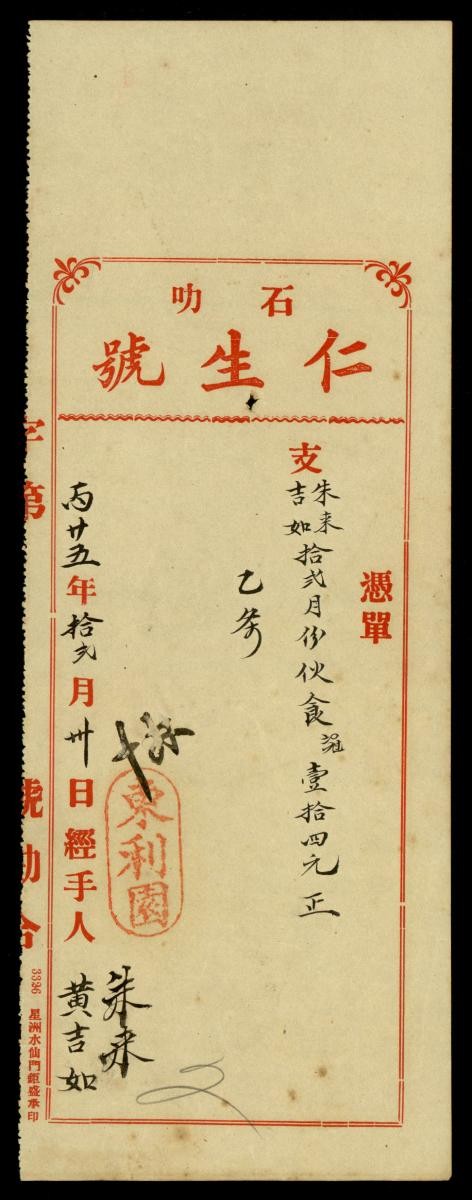 石叻
仁生號
憑單
支
朱来
吉如
拾弍月份伙食
壹拾四元正
乙条
東利園
丙廿五年拾弍月卅日經手人
朱来
黄吉如
字第
號勘合
3396 星洲水仙門鉅盛承印